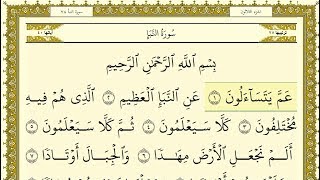 سُورَةُ النَّبَإِ
بِسْمِ ٱللَّهِ ٱلرَّحْمَٰنِ ٱلرَّحِيمِ
عَمَّ يَتَسَآءَلُونَ ١ عَنِ ٱلنَّبَإِ ٱلْعَظِيمِ ٢ ٱلَّذِى هُمْ فِيهِ
مُخْتَلِفُونَ ٣ كَلَّا سَيَعْلَمُونَ ٤ ثُمَّ كَلَّا سَيَعْلَمُونَ ٥
أَلَمْ نَجْعَلِ ٱلْأَرْضَ مِهَٰدًا ٦ وَٱلْجِبَالَ أَوْتَادًا ٧